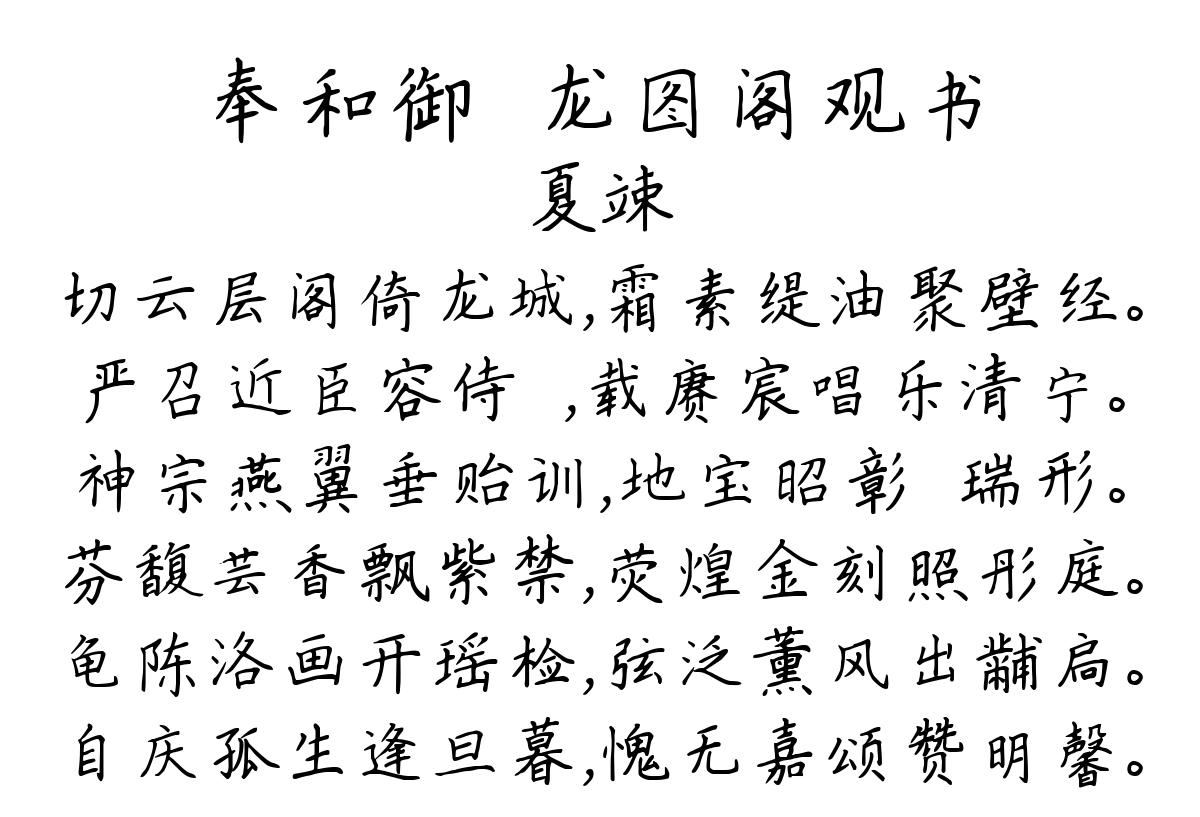 奉和御 龙图阁观书
夏竦
切云层阁倚龙城,霜素缇油聚壁经。
严召近臣容侍 ,载赓宸唱乐清宁。
神宗燕翼垂贻训,地宝昭彰 瑞形。
芬馥芸香飘紫禁,荧煌金刻照彤庭。
龟陈洛画开瑶检,弦泛薰风出黼扃。
自庆孤生逢旦暮,愧无嘉颂赞明馨。